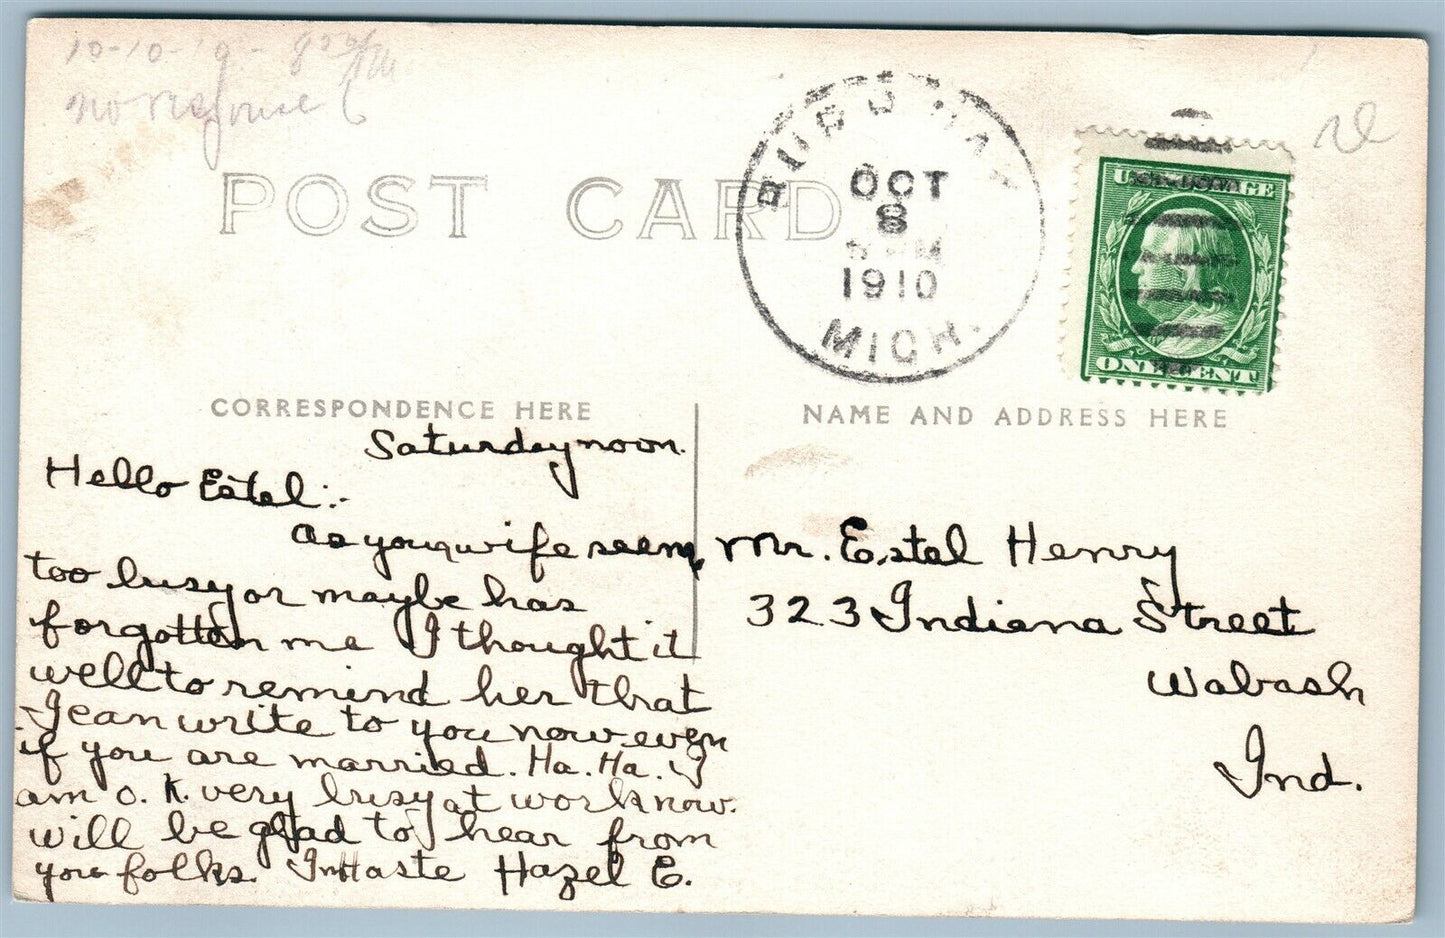 10-10-19-8
no response
POST CARD
OCT
8
PM
1910
MICH.
U.S. POSTAGE
ONE CENT
CORRESPONDENCE HERE
NAME AND ADDRESS HERE
Saturday noon.
Hello Estel:-
As your wife seems
too busy or maybe has
forgotten me I thought it
well to remind her that
I can write to you now even
if you are married. Ha. Ha. I
am O.K. very busy at work now.
will be glad to hear from
you folks. In Haste Hazel E.
Mr. Estel Henry
323 Indiana Street
Wabash
Ind.